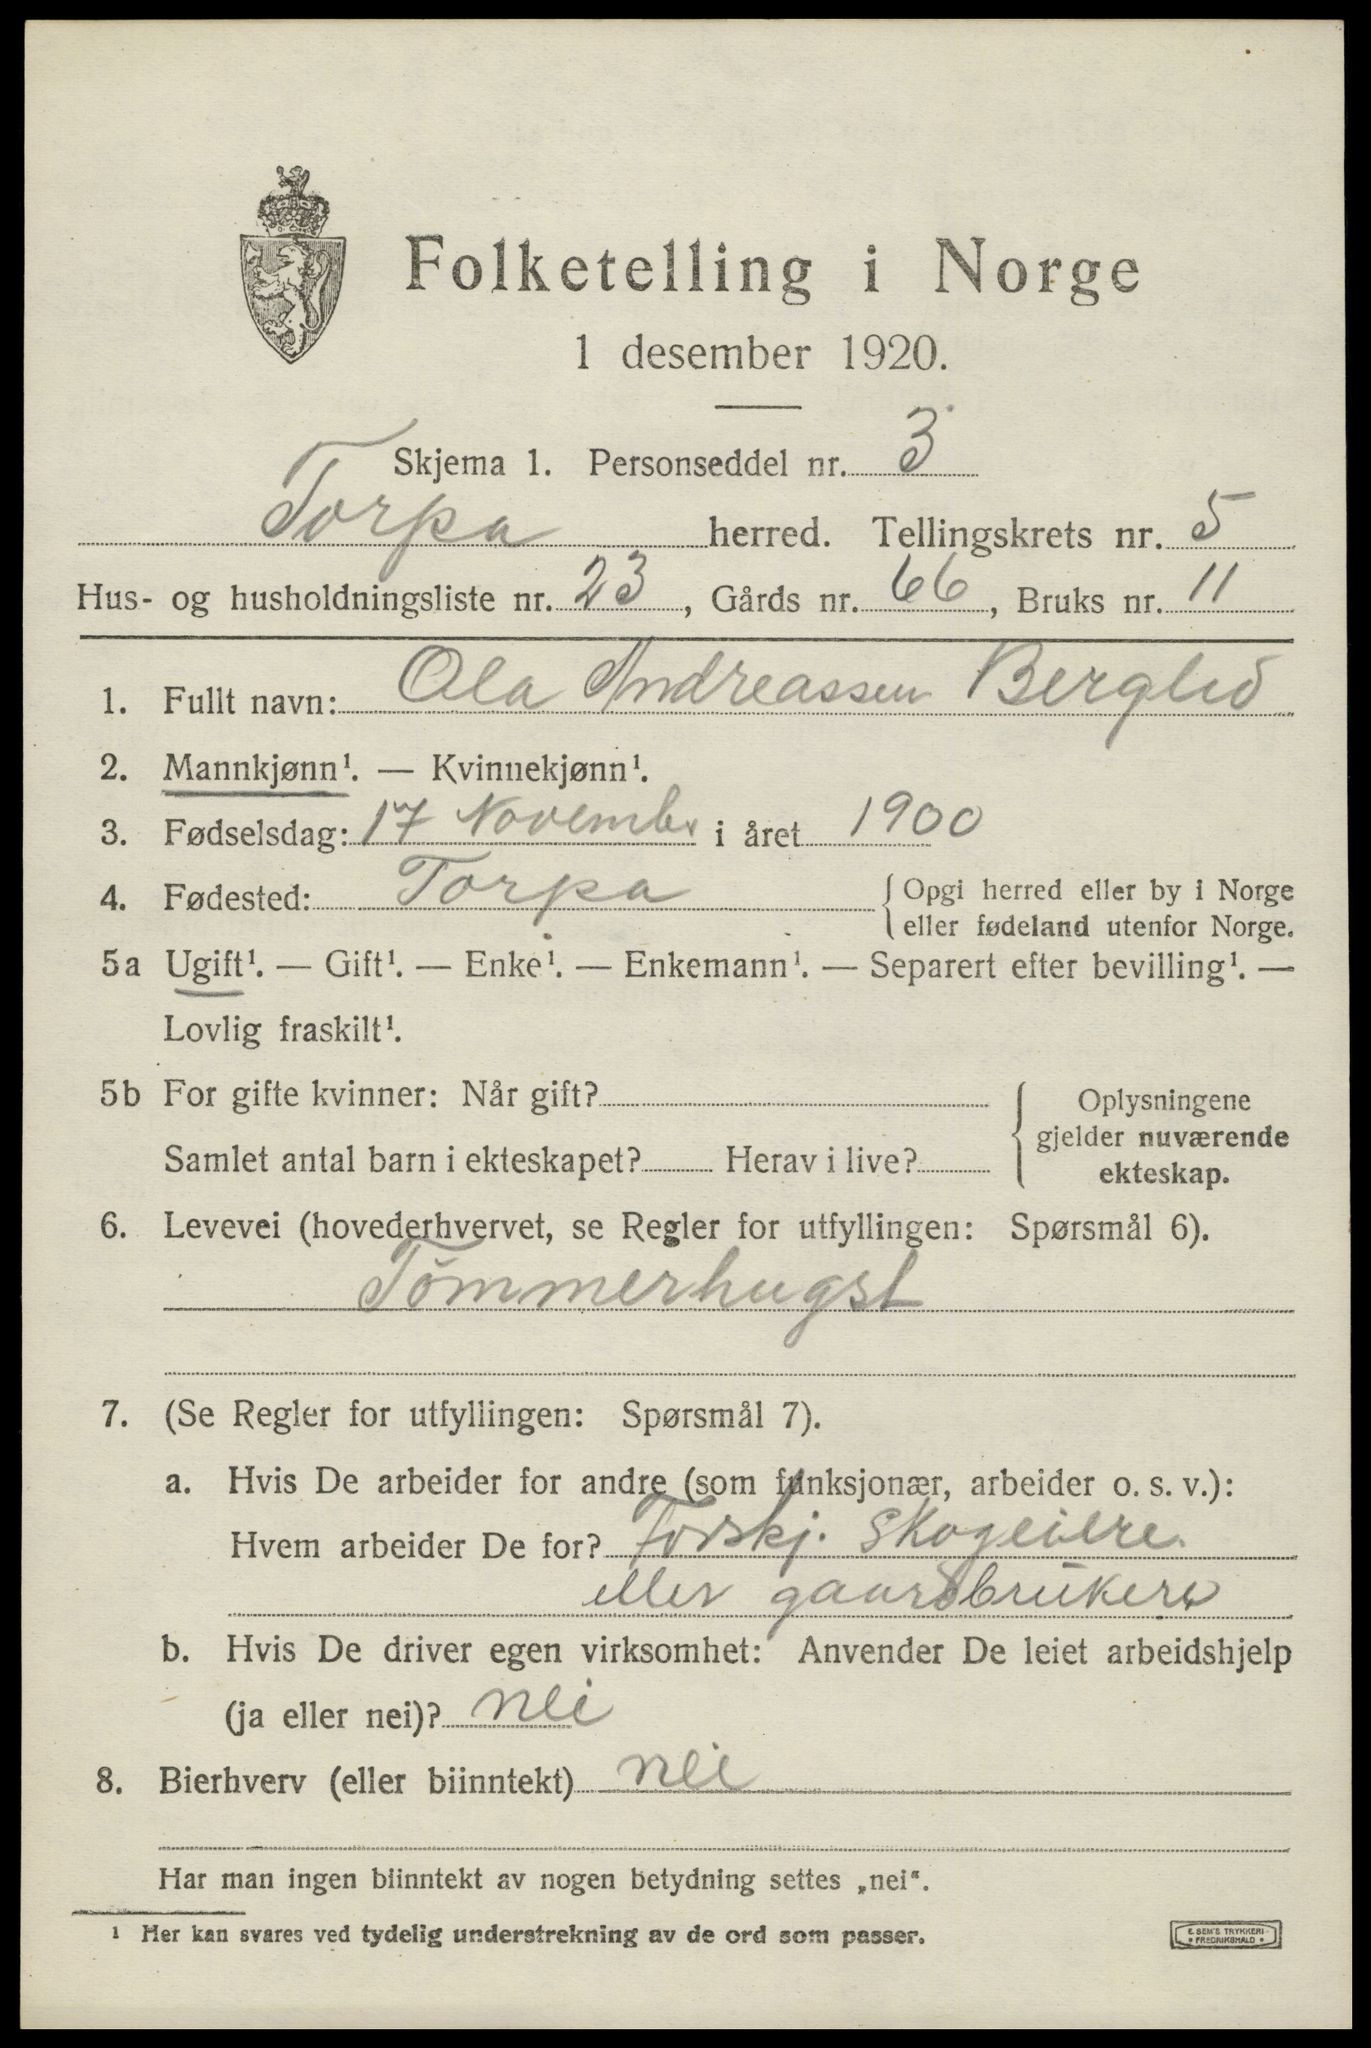 Folketelling i Norge
1 desember 1920.
Skjema 1. Personseddel nr. 3
Torpa herred. Tellingskrets nr. 5
Hus- og husholdningsliste nr. 23, Gårds nr. 66, Bruks nr. 11
1. Fullt navn: Ola Andreassen Berglid
2. Mannkjønn¹. — Kvinnekjønn¹.
3. Fødselsdag: 17 Novembr i året 1900
4. Fødested: Torpa { Opgi herred eller by i Norge
eller fødeland utenfor Norge.
5a Ugift¹. — Gift¹. — Enke¹. — Enkemann¹. — Separert efter bevilling¹. —
Lovlig fraskilt¹.
5b For gifte kvinner: Når gift?
Samlet antal barn i ekteskapet? Herav i live?
Oplysningene
gjelder nuværende
ekteskap.
6. Levevei (hovederhvervet, se Regler for utfyllingen: Spørsmål 6).
Tömmerhugst
7. (Se Regler for utfyllingen: Spørsmål 7).
a. Hvis De arbeider for andre (som funksjonær, arbeider o. s. v.):
Hvem arbeider De for? Forskj. Skogeiere
eller gaardbrukere
b. Hvis De driver egen virksomhet: Anvender De leiet arbeidshjelp
(ja eller nei)? nei
8. Bierhverv (eller biinntekt) nei
Har man ingen biinntekt av nogen betydning settes „nei“.
¹ Her kan svares ved tydelig understrekning av de ord som passer.
E. SEM'S TRYKKERI
FREDRIKSHALD